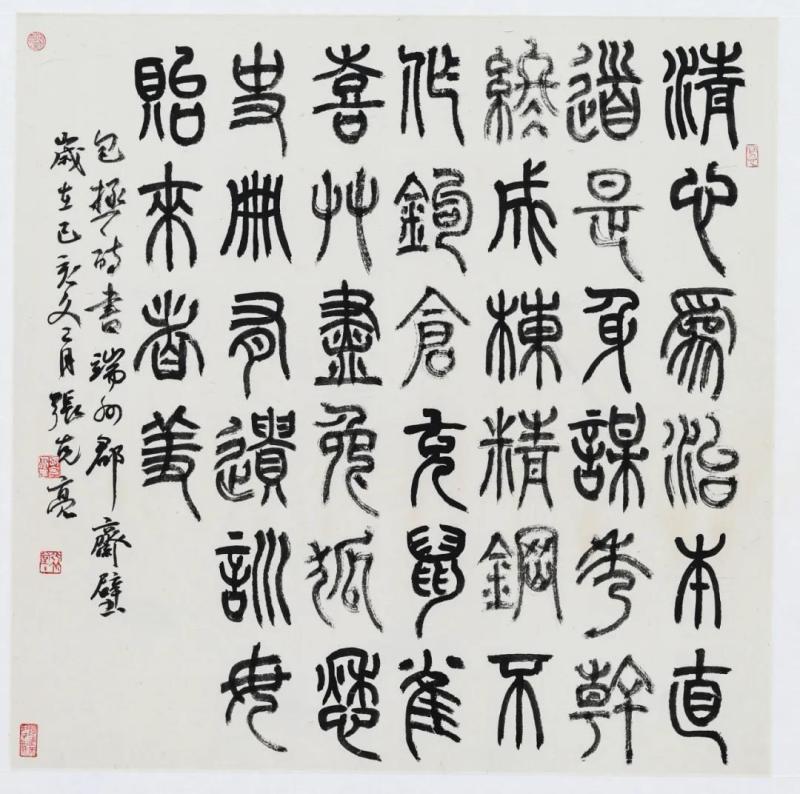 清心為治本直
道是身謀秀幹
終成棟精鋼不
作鉤倉充鼠雀
喜艸盡兔狐愁
史冊有遺訓毋
貽來者羞
包拯詩書端州郡齋壁
歲在己亥冬月張克亮